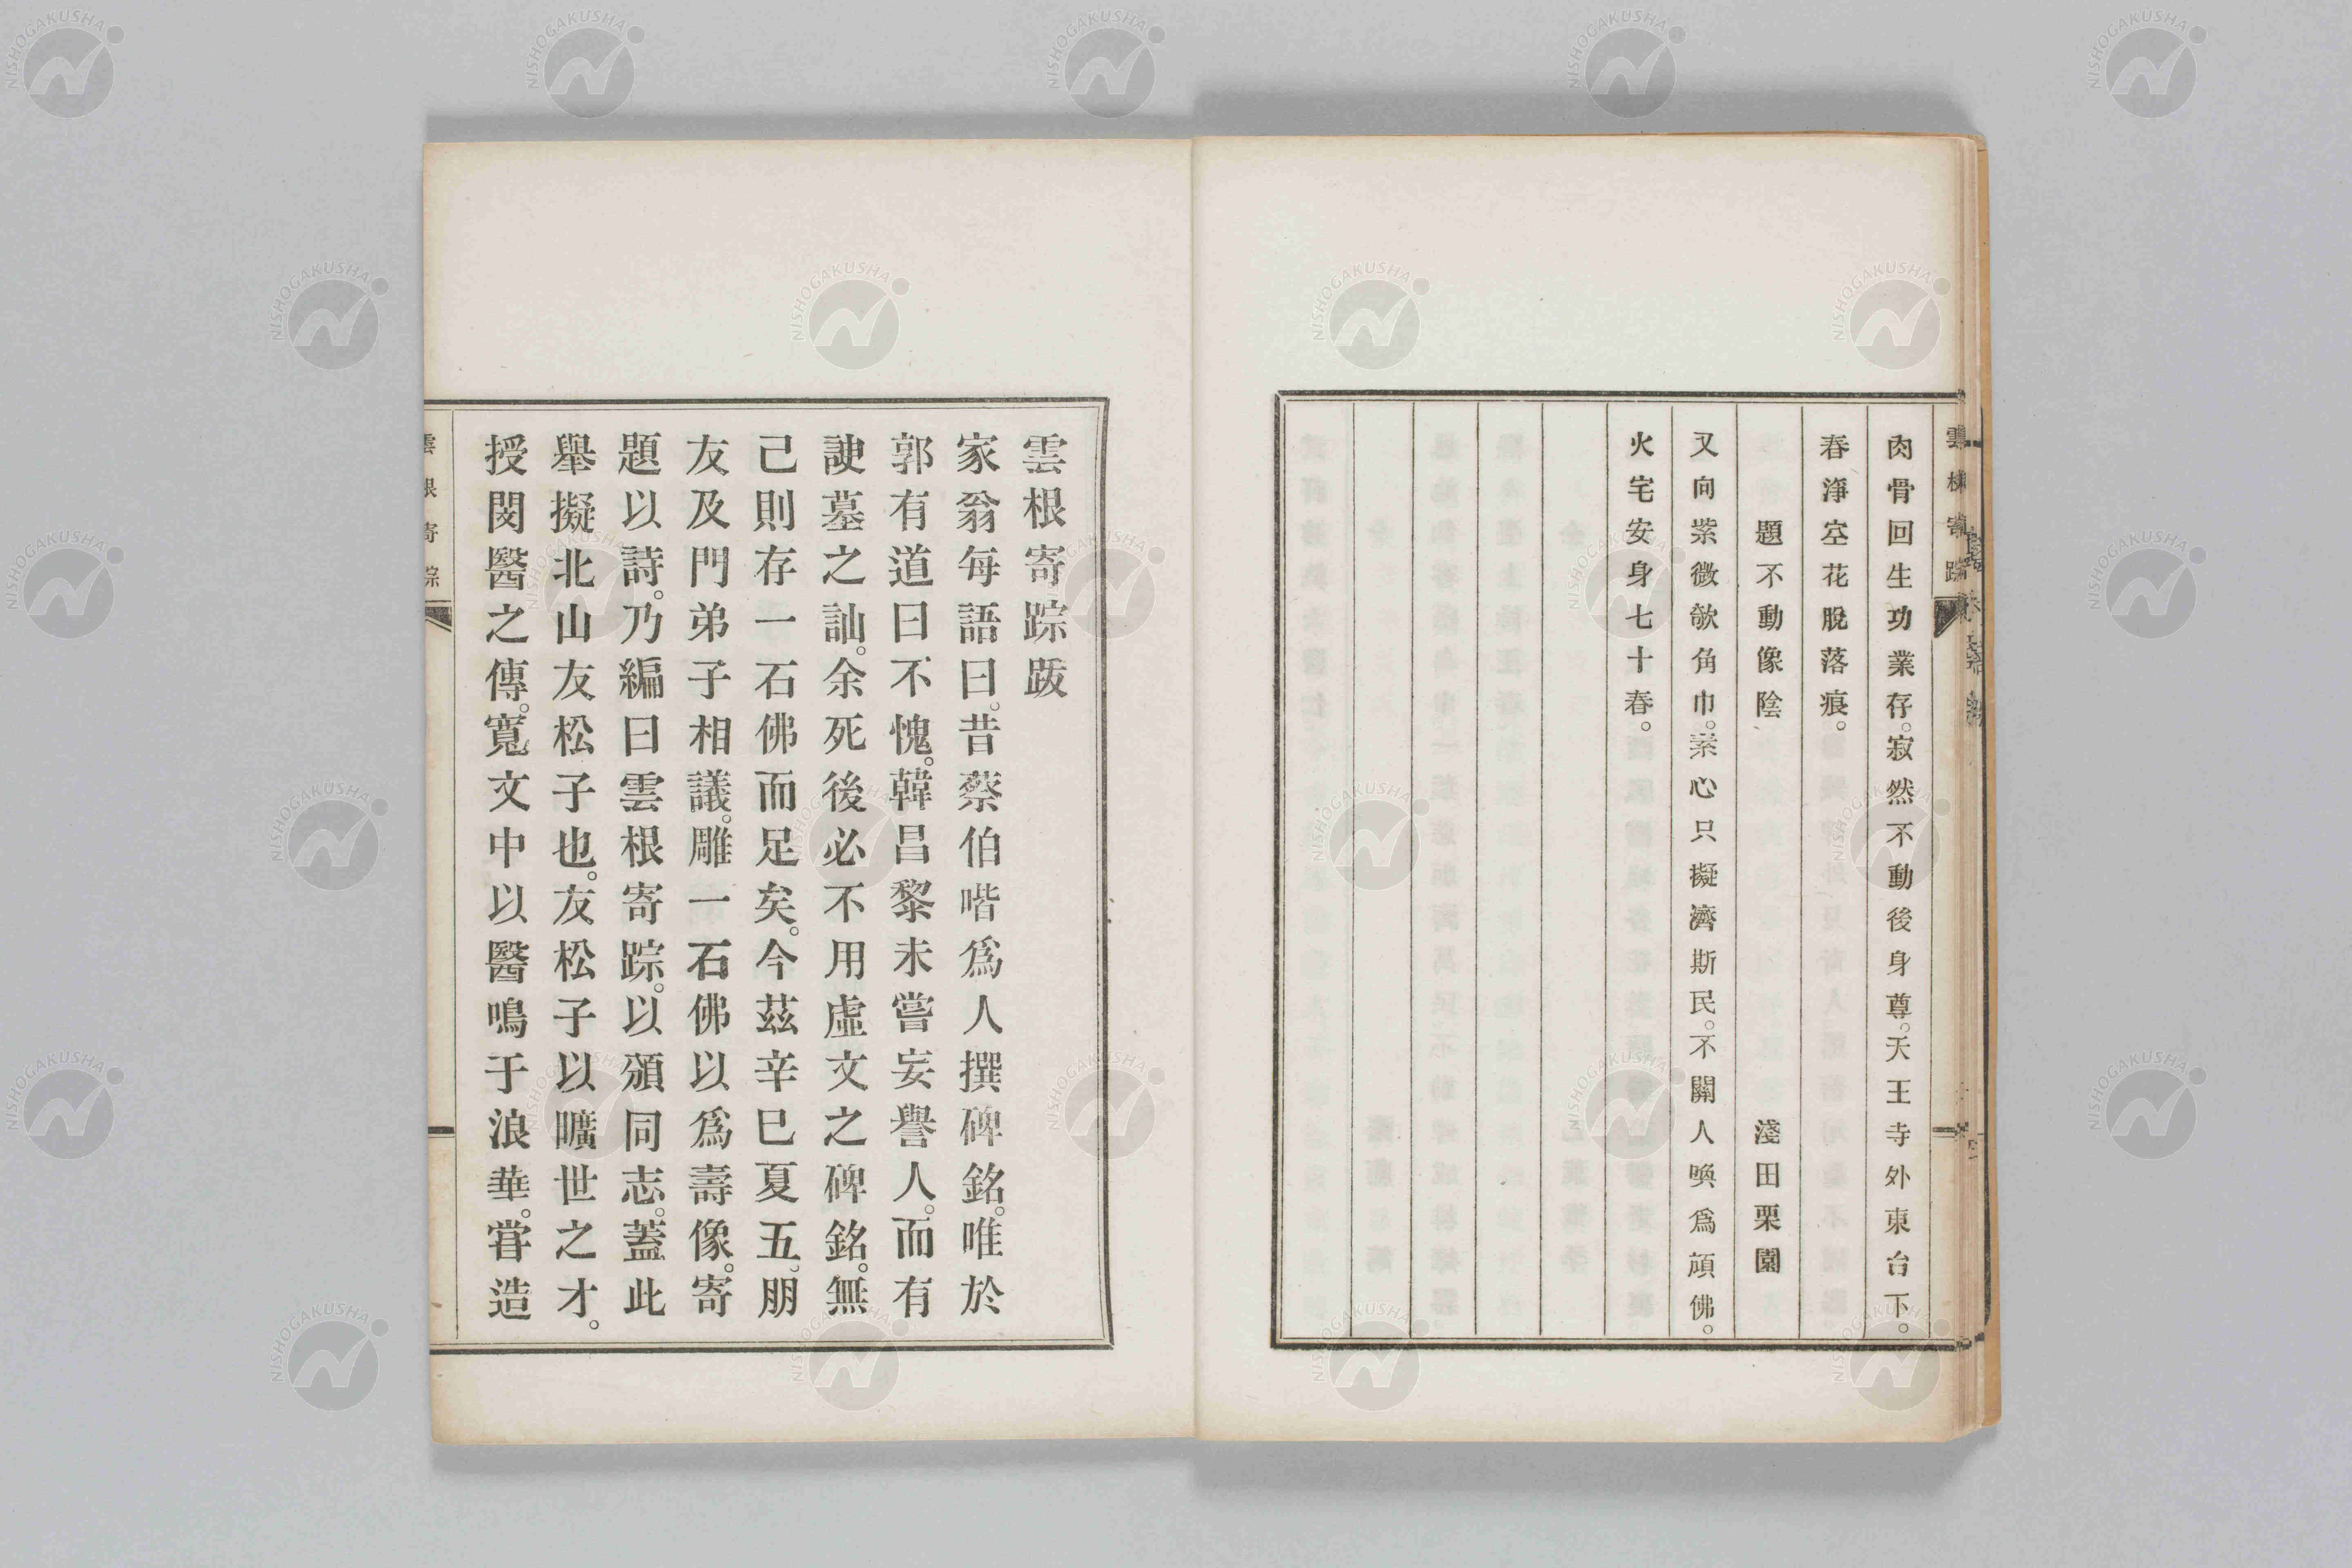 肉骨回生功業存。寂然不動後身尊。天王寺外東台下。
春淨空花脫落痕。
題不動像陰　淺田栗園
又向紫微欹角巾。素心只擬濟斯民。不關人喚爲頑佛。
火宅安身七十春。
雲根寄踪跋
家翁每語曰。昔蔡伯喈爲人撰碑銘。唯於
郭有道曰不愧。韓昌黎未嘗妄譽人。而有
諛墓之訕。余死後必不用虛文之碑銘。無
己則存一石佛而足矣。今茲辛巳夏五。朋
友及門弟子相議。雕一石佛以爲壽像。寄
題以詩。乃編曰雲根寄踪。以頒同志。蓋此
舉擬北山友松子也。友松子以曠世之才。
授閔醫之傳。寬文中以醫鳴于浪華。嘗造
NISHOGAKUSHA